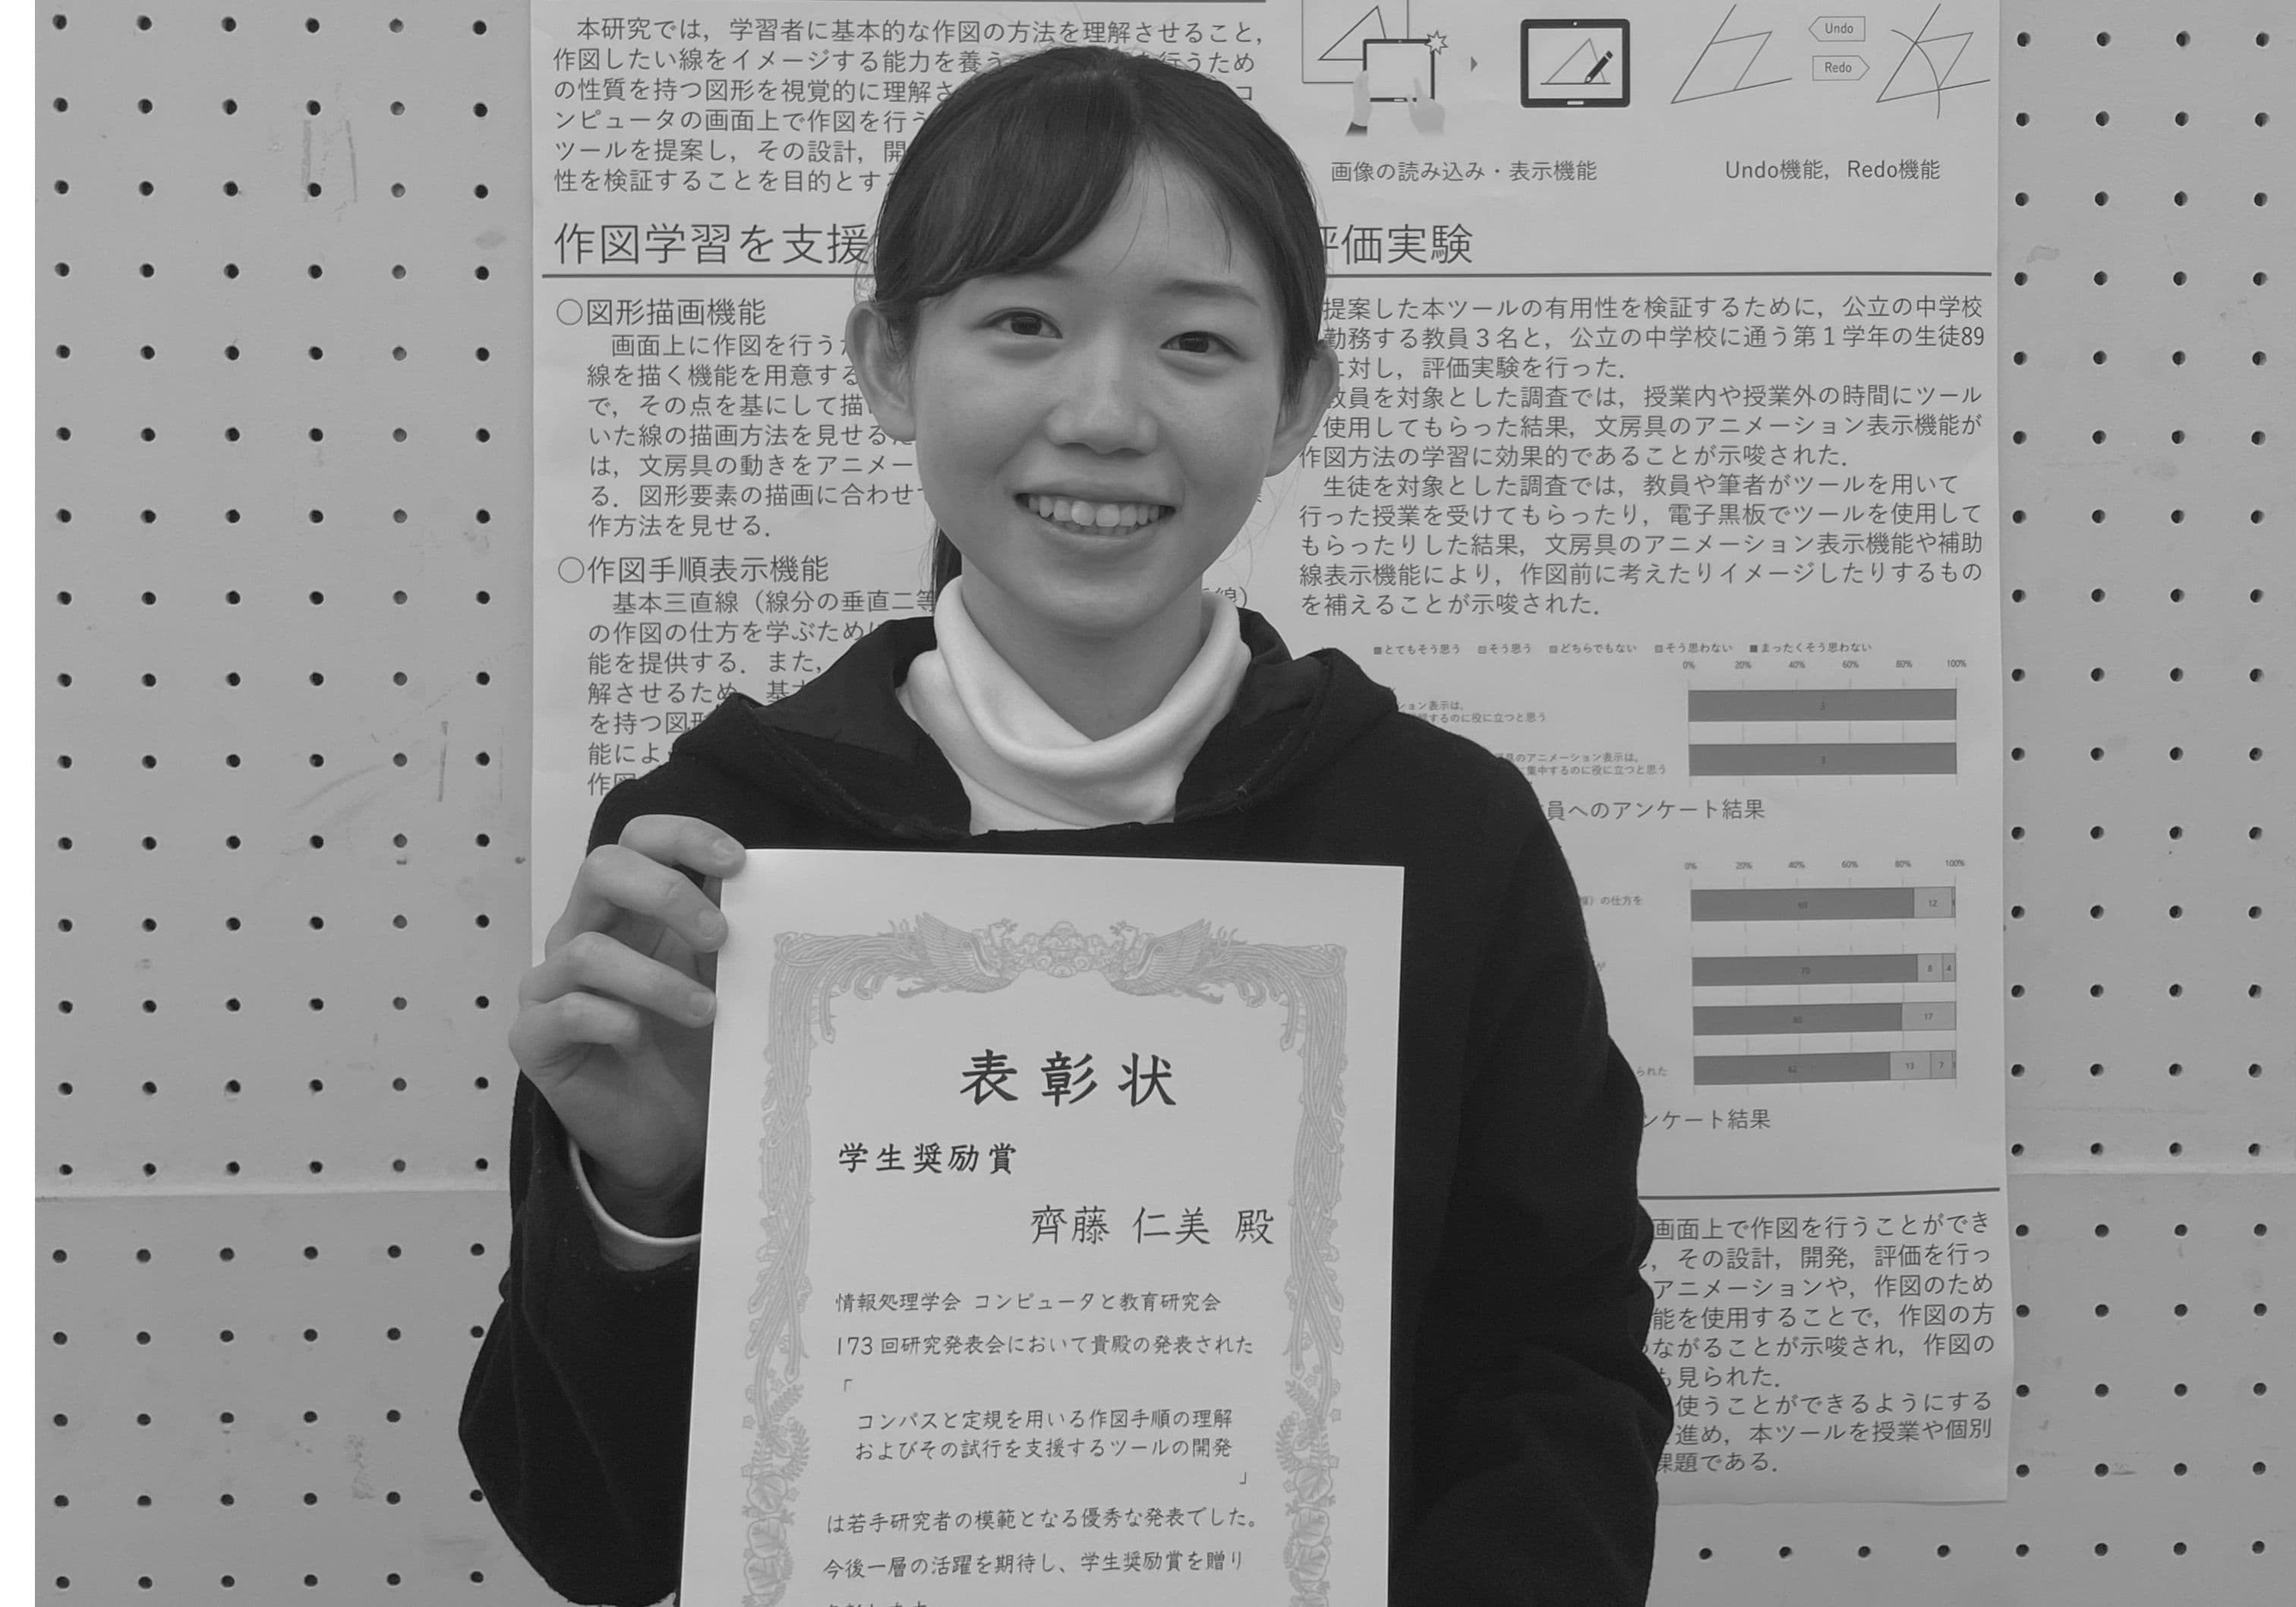 本研究では，学習者に基本的な作図の方法を理解させること，
作図したい線をイメージする能力を養う
行うため
の性質を持つ図形を視覚的に理解さ
コ
ンピュータの画面上で作図を行う
ツールを提案し，その設計，開
性を検証することを目的とす
作図学習を支援
○図形描画機能
画面上に作図を行う
線を描く機能を用意する
で，その点を基にして描
いた線の描画方法を見せるた
は，文房具の動きをアニメー
る．図形要素の描画に合わせ
作方法を見せる．
○作図手順表示機能
基本三直線（線分の垂直二等
線）
の作図の仕方を学ぶために
能を提供する．また，
解させるため，基本
を持つ図形
能によ
作図
Undo
Redo
画像の読み込み・表示機能
Undo機能，Redo機能
評価実験
提案した本ツールの有用性を検証するために，公立の中学校
勤務する教員３名と，公立の中学校に通う第１学年の生徒89
に対し，評価実験を行った．
教員を対象とした調査では，授業内や授業外の時間にツール
を使用してもらった結果，文房具のアニメーション表示機能が
作図方法の学習に効果的であることが示唆された．
生徒を対象とした調査では，教員や筆者がツールを用いて
行った授業を受けてもらったり，電子黒板でツールを使用して
もらったりした結果，文房具のアニメーション表示機能や補助
線表示機能により，作図前に考えたりイメージしたりするもの
を補えることが示唆された．
とてもそう思う そう思う どちらでもない そう思わない まったくそう思わない
0% 20% 40% 60% 80% 100%
ション表示は，
するのに役に立つと思う
3
具のアニメーション表示は，
に集中するのに役に立つと思う
3
員へのアンケート結果
0% 20% 40% 60% 80% 100%
の仕方を
12
70 8 4
17
られた
62 13 7
ンケート結果
画面上で作図を行うことができ
，その設計，開発，評価を行っ
アニメーションや，作図のため
能を使用することで，作図の方
つながることが示唆され，作図の
も見られた．
使うことができるようにする
進め，本ツールを授業や個別
課題である．
表彰状
学生奨励賞
齊藤 仁美 殿
情報処理学会 コンピュータと教育研究会
173回研究発表会において貴殿の発表された
「
コンパスと定規を用いる作図手順の理解
およびその試行を支援するツールの開発
」
は若手研究者の模範となる優秀な発表でした。
今後一層の活躍を期待し、学生奨励賞を贈り